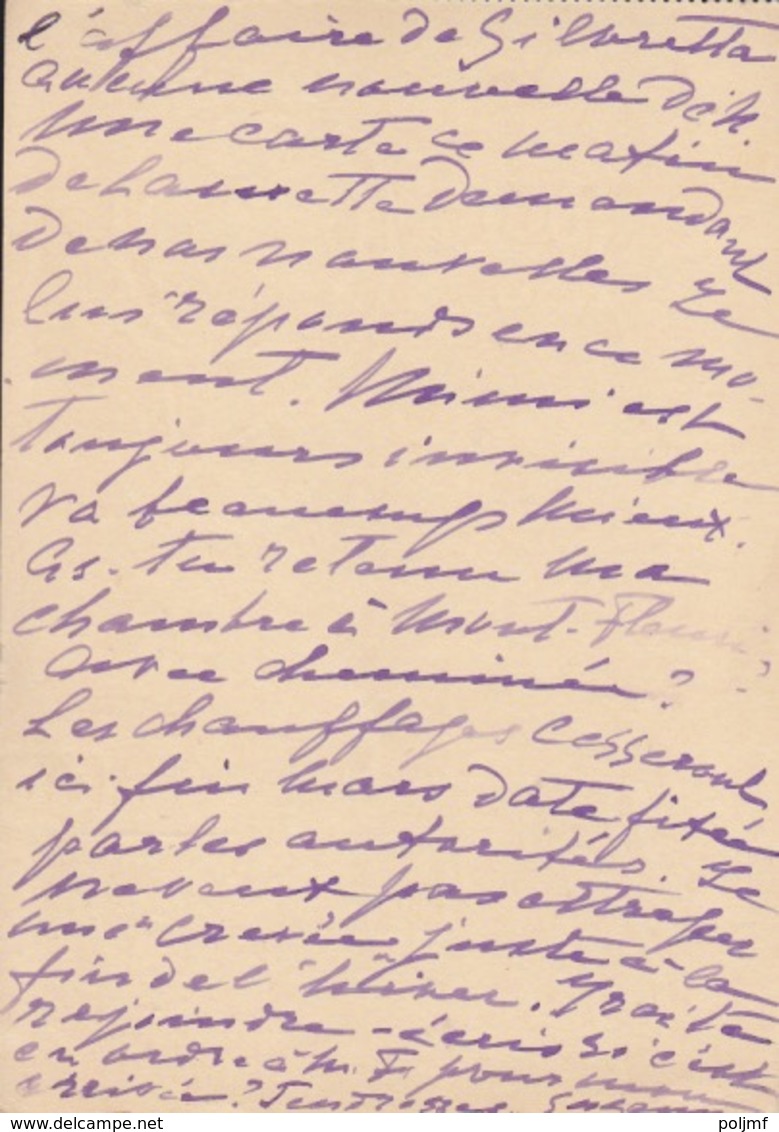 l'affaire de Silvretta
aucune nouvelle
Une carte ce matin
de Lannette demandant
de nos nouvelles Je
lui réponds en ce mo-
ment. Mimi est
toujours invisible
va beaucoup mieux.
As-tu retenu ma
chambre à Mont-Fleuri ?
avec cheminée ?
Les chauffages cesseront
ici fin mars date fixée
par les autorités. Je
ne veux pas attraper
une crevée juste à la
fin de l'hiver. J'irai te
rejoindre - écris si c'est
en ordre à M. F. pour mon
arrivée ? Tendresses.
www.delcampe.net
poljmf